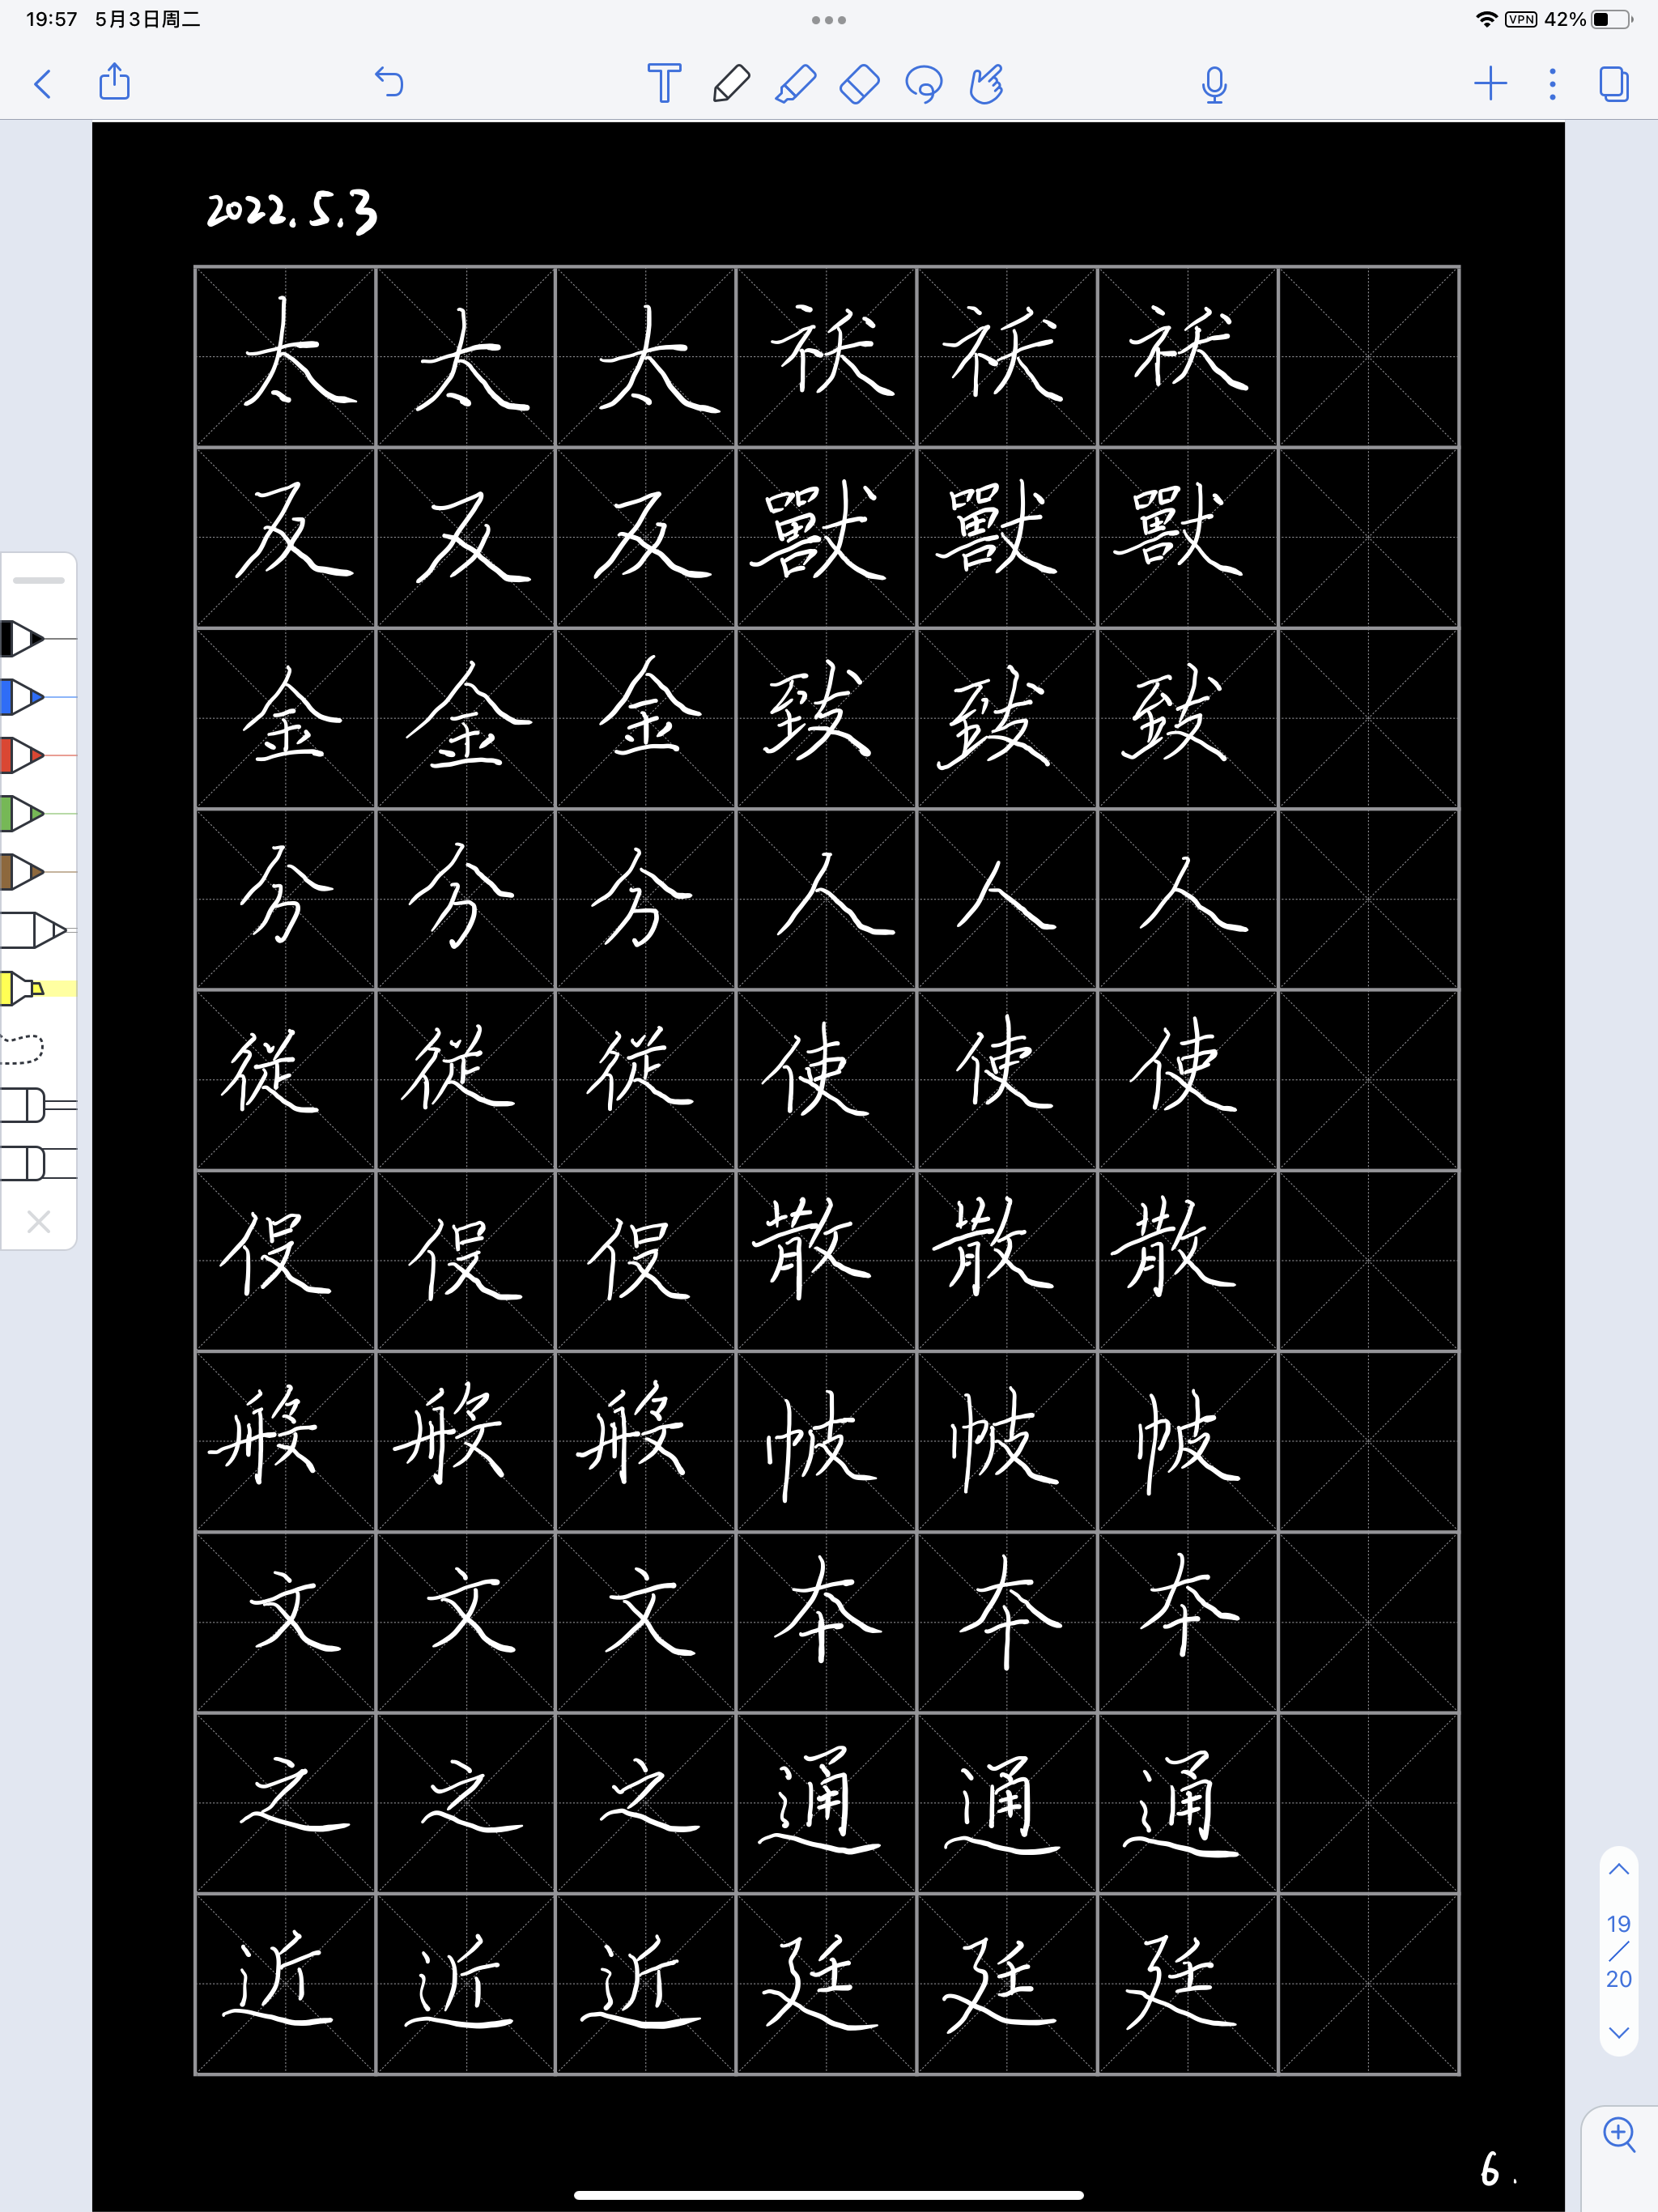 19:57 5月3日周二
VPN 42%
2022.5.3
太太太祆祆祆
反反反獸獸獸
金金金致致致
分分分人人人
従従従使使使
伇伇伇散散散
般般般帔帔帔
文文文本本本
之之之通通通
近近近廷廷廷
19
20
6.